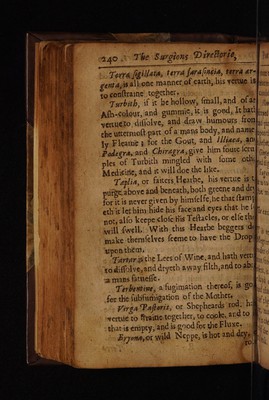 240 The Surgions Directorie,
Terra sigillata, terra sarasincia, terra ar-
genta, is all one manner of earth, his vertue is
to constraine together.
Turbith, if it be hollow, small, and of an
Ash-colour, and gummie, it is good, It hath
vertue to dissolve, and draw humours from
the uttermost part of a mans body, and name
ly Fleame; for the Gout, and Illiaca, and
Podegra, and Chiragra, give him foure scru
ples of Turbith mingled with some oth
Medicine, and it will doe the like.
Tapsia, or faiters Hearbe, his vertue is t
purge above and beneath, both greene and dr
for it is never given by himselfe, he that stamp
eth it let him hide his face and eyes that he
not, also keepe close his Testacles, or else the
will swell. With this Hearbe beggers d
make themselves seeme to have the Drop
upon them.
Tartar, is the Lees of Wine, and hath vert
to dissolve, and dryeth away filth, and to ab
a mans fatnesse.
Terbentine, a fugimation thereof, is go
for the subfumigation of the Mother.
Virga Pastoris, or Shepheards rod: h
vertue to straine together, to coole, and to
that is empty, and is good for the Fluxe.
Bryona, or wild Neppe, is hot and dry,
to